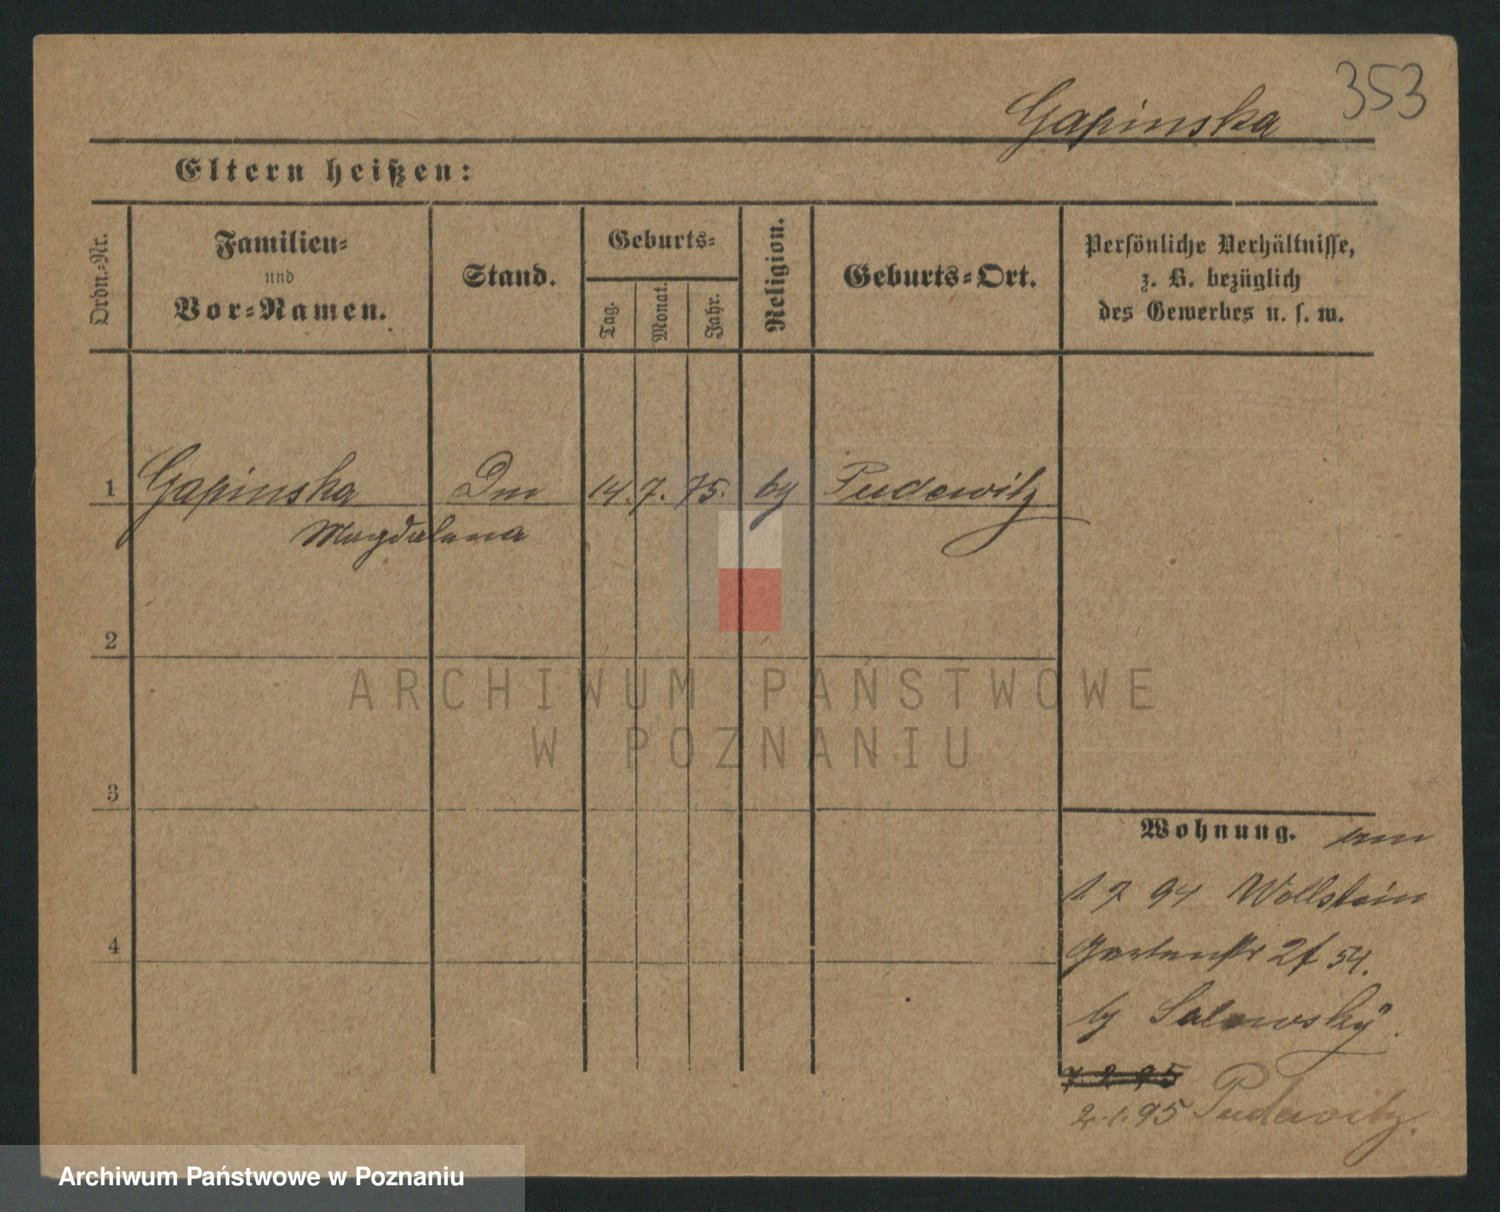 353
Gapinska
Eltern heißen:
Ordn.-Nr.
Familien-
und
Vor-Namen.
Stand.
Geburts-
Tag.
Monat.
Jahr.
Religion.
Geburts-Ort.
Persönliche Verhältnisse,
z. B. bezüglich
des Gewerbes u. s. w.
1 Gapinska 14. 7. 75. Pudewitz
Magdalena
2
3
4
Wohnung.
1 7 94 Wollstein
Gartenstr 54.
2.1.95 Pudewitz.
ARCHIWUM PAŃSTWOWE
W POZNANIU
Archiwum Państwowe w Poznaniu